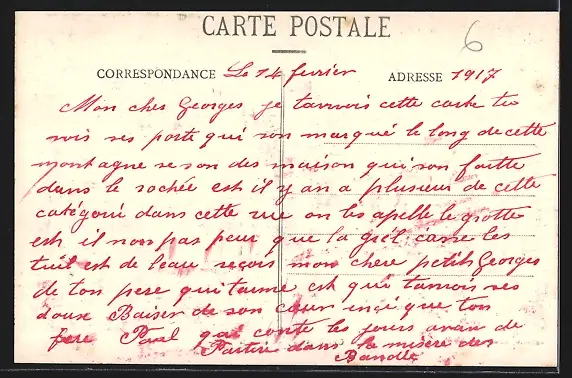 CARTE POSTALE
6
CORRESPONDANCE Le 14 fevrier ADRESSE 1917
Mon cher Georges je tanvois cette carte tu
vois ses porte qui son marqué le long de cette
montagne se son des maison qui son faitte
dans le rochée est il y an a plusieur de cette
catégorie dans cette rue on les apelle le grotte
est il non pas peur que la grêl casse les
tuil est de leau reçois mon chere petit Georges
de ton pere qui taime est qui tanvois ses
doux Baiser de son cœur insi que ton
frere Paul qui conte les jours avan de
Partire dans la misere des